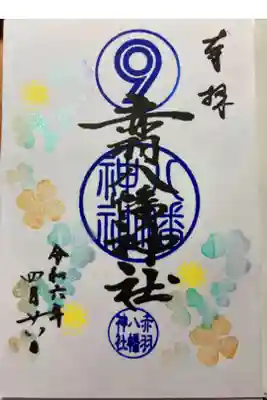 奉拝
9
赤羽八幡神社
八幡
神社
赤羽
八幡
神社
令和六年
四月廿八日